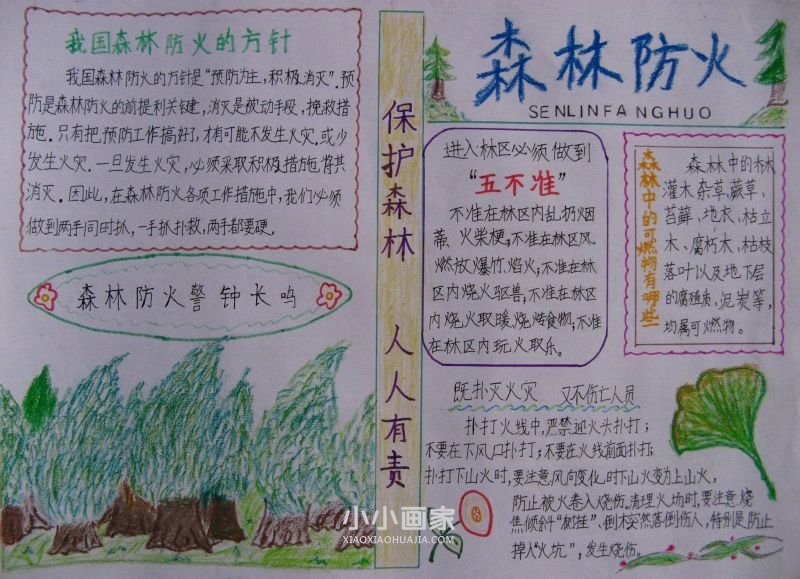 我国森林防火的方针
我国森林防火的方针是"预防为主,积极消灭".预
防是森林防火的前提和关键,消灭是被动手段,挽救措
施.只有把预防工作搞好了,才有可能不发生火灾.或少
发生火灾.一旦发生火灾,必须采取积极措施,将其
消灭.因此,在森林防火各项工作措施中,我们必须
做到两手同时抓,一手抓扑救,两手都要硬.
森林防火警钟长鸣
保护森林 人人有责
森林防火
SENLINFANGHUO
进入林区必须做到
"五不准"
不准在林区内乱扔烟
蒂、火柴梗;不准在林区风
燃放爆竹、焰火;不准在林
区内烧火驱兽;不准在林区
内烧火取暖、烧烤食物;不准
在林区内玩火取乐。
森林中的可燃物有哪些
森林中的林
灌木、杂草、蕨草、
苔藓、地衣、枯立
木、腐朽木、枯枝
落叶以及地下层
的腐殖质、泥炭等,
均属可燃物。
既扑灭火灾 又不伤亡人员
扑打火线中,严禁迎火头扑打;
不要在下风口扑打;不要在火线前面扑打;
扑打下山火时,要注意风向变化,时下山火变为上山火,
防止被火卷入烧伤。清理火场时,要注意烧
焦倾斜"树挂"、倒木突然落倒伤人,特别是防止
掉入"火坑",发生烧伤。
小小画家
XIAOXIAOHUAJIA.COM